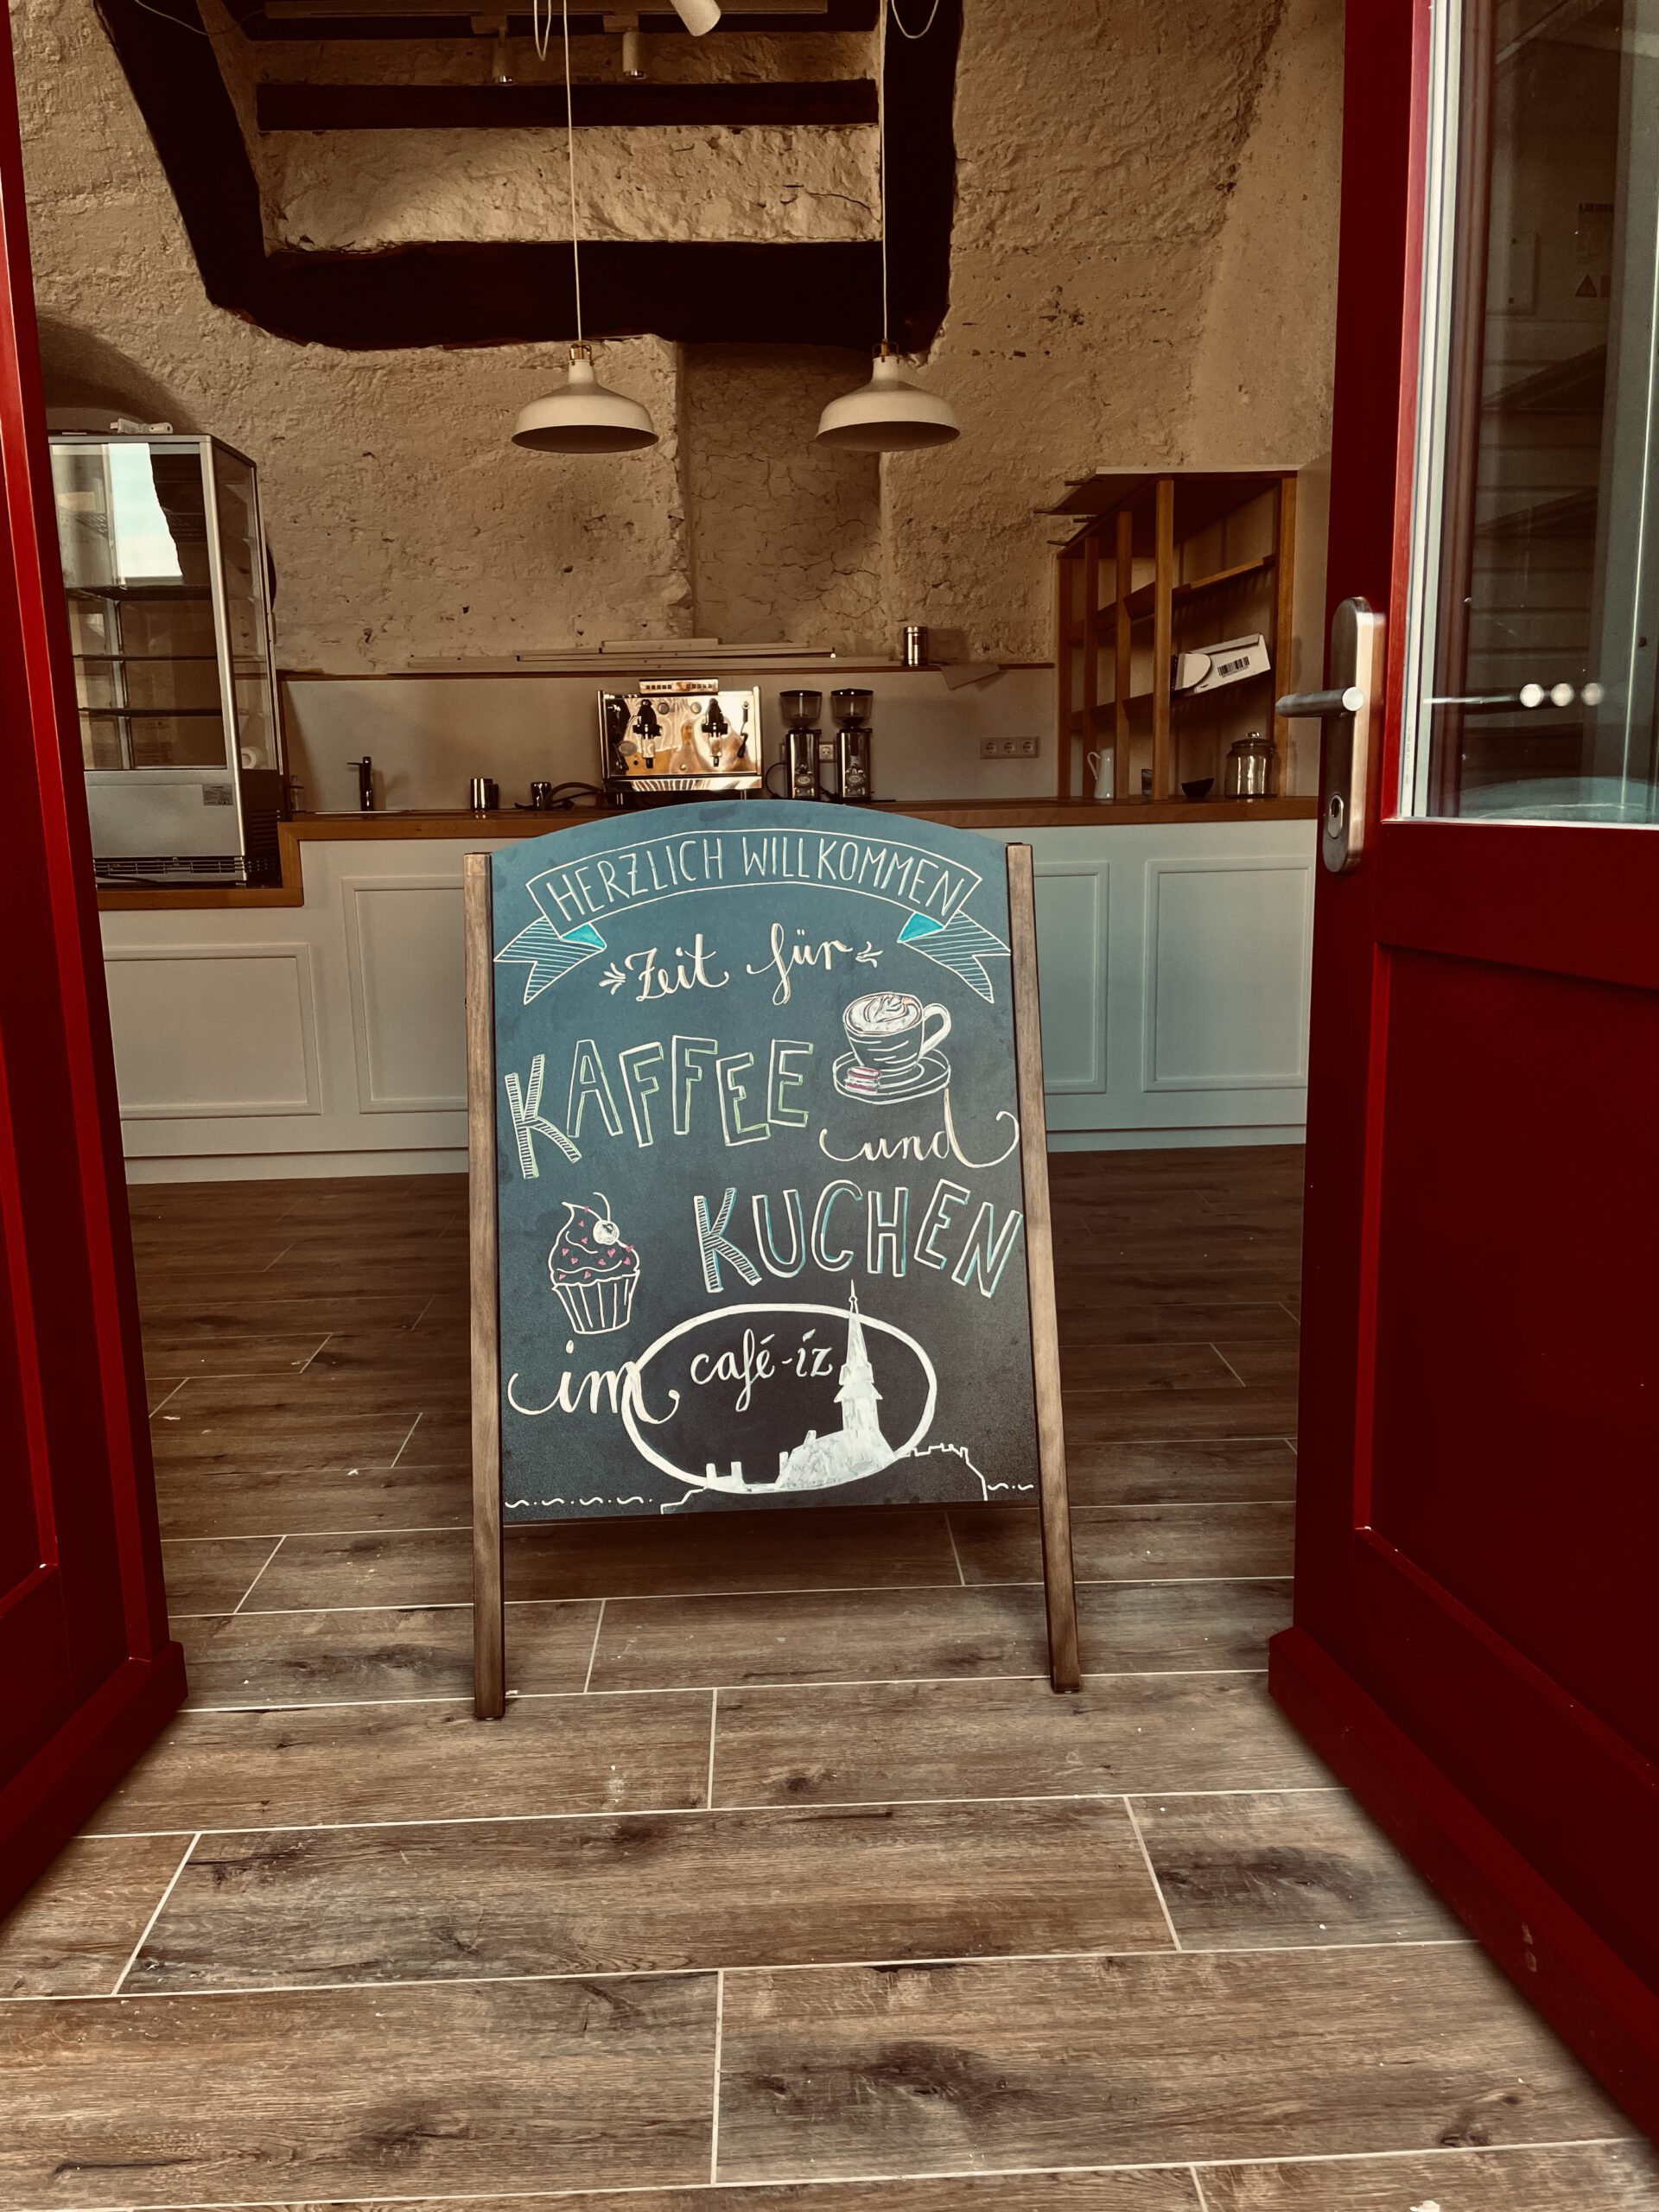 HERZLICH WILLKOMMEN
Zeit für
KAFFEE
und
KUCHEN
im café-iz